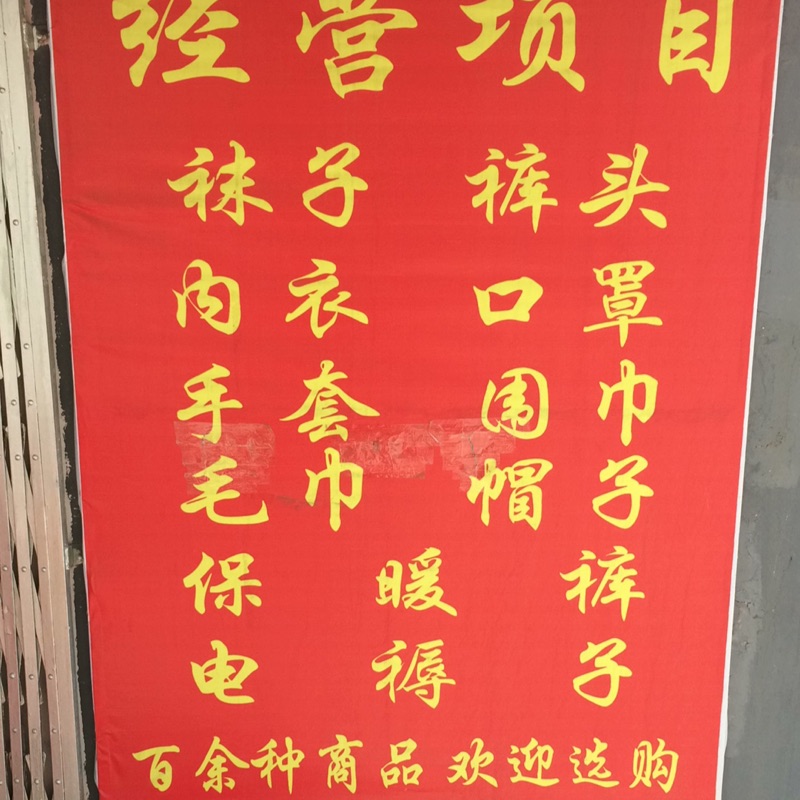 经营项目
袜子 裤头
内衣 口罩
手套 围巾
毛巾 帽子
保暖裤
电褥子
百余种商品 欢迎选购